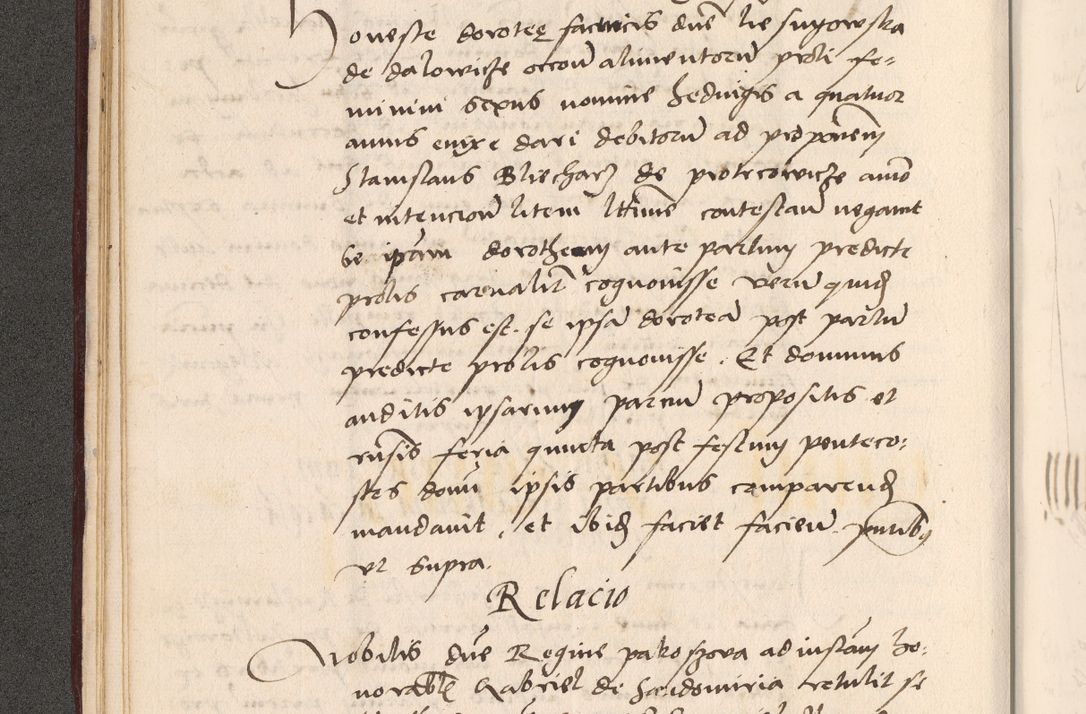 Honeste dorotee factricis dne liesugowska
de dalowicze occon alimentorum proli fe-
minini sexus nomine hedvigis a quatuor
annis enixe dari debitorum ad proponem
Stanislaus Bliecharz de protecowicze animo
et intencione litem lttime contestan negavit
se ipam dorotheam ante partum predicte
prolis carnalit cognovisse verum quid
confessus est. se ipsa dorotea post partu
predicte prolis cognovisse. Et dominus
auditis ipsarum parcium propositis et
rnsis feria quinta post festum penteco-
stes domi ipsis partibus comparend
mandavit, et ibid faciet facien. pntibus
ut supra.
Relacio
Nobilis dne Regine pakoszova ad instam ho-
norabl Gabriel de Sandomiria retulit se